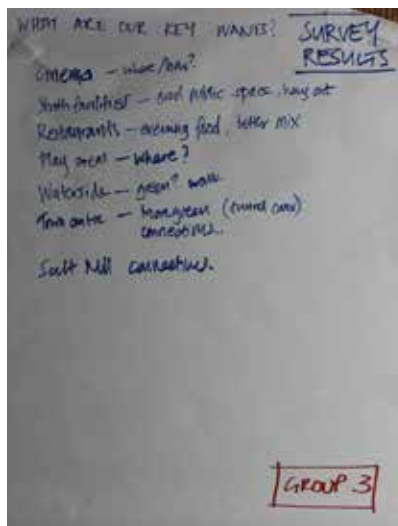 WHAT ARE OUR KEY WANTS?
SURVEY
RESULTS
Cinema - where/how?
Youth facilities - and public space, hang out
Restaurants - evening food, better mix
Play areas - where?
Waterside - green? walk
Town centre - more green
connections.
Salt Mill connections.
GROUP 3